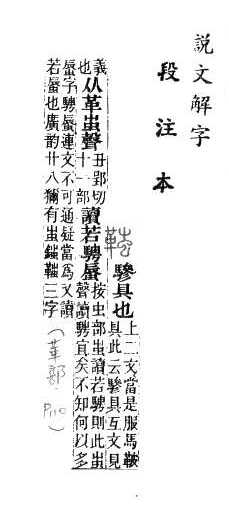 說文解字
段注本
驂具也上二文當是服馬鞍
具此云驂具互文見
義
也从革蚩聲丑郢切
十一部讀若騁蜃按虫部蚩讀若騁則此蚩
聲讀騁宜矣不知何以多
蜃字騁蜃連文不可通疑當爲又讀
若蜃也廣韵廿八獮有蚩三字
(革部. P110)